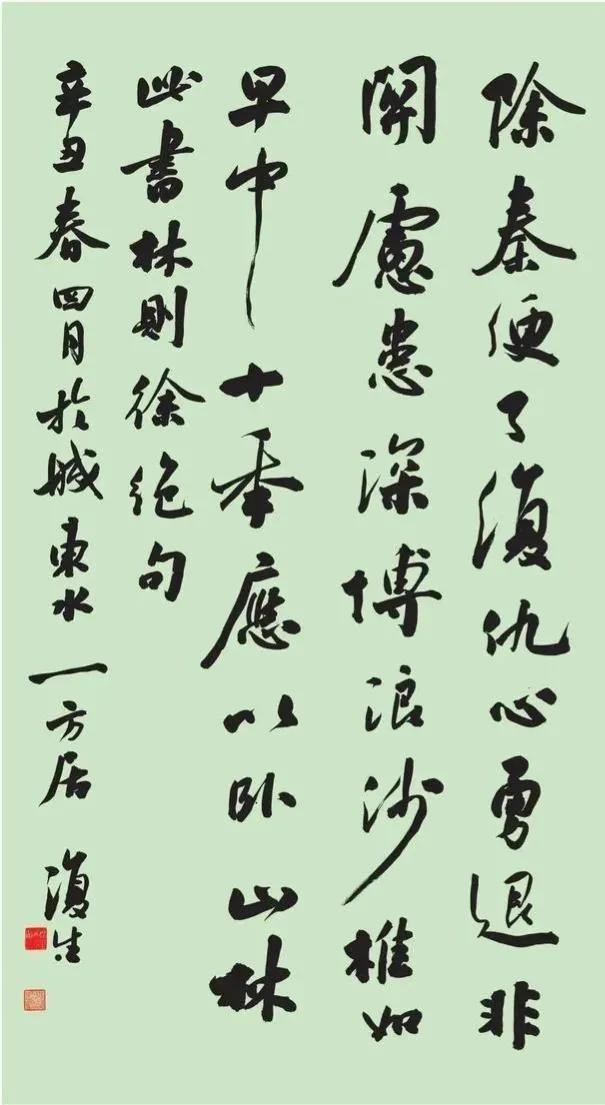 除秦便了復仇心勇退非
關慮患深博浪沙椎如
早中十年應以臥山林
此書林則徐絕句
辛丑春四月於城東水一方居 復生